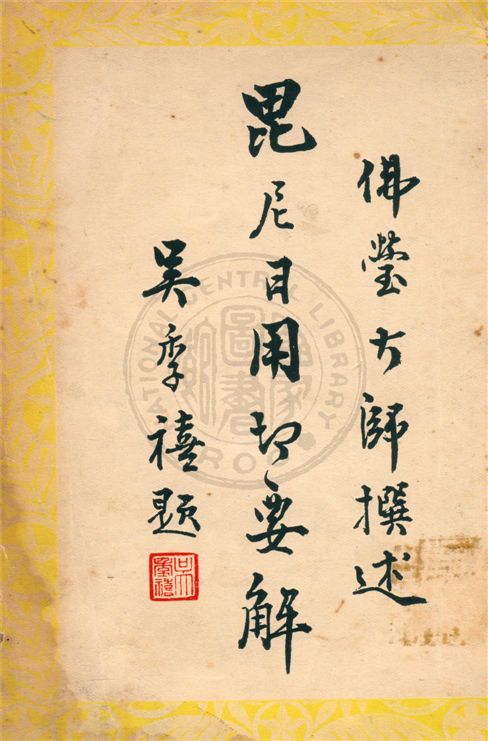 佛瑩大師撰述
毘尼日用切要解
吳季禧題
NATIONAL CENTRAL LIBRARY
R.O.C.